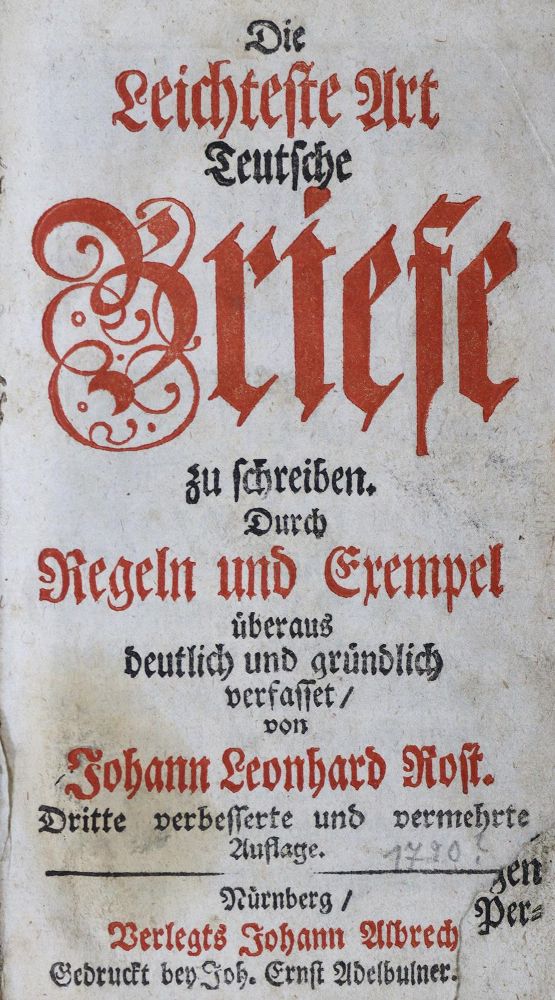 Die
Leichteste Art
Teutsche
Briefe
zu schreiben.
Durch
Regeln und Exempel
überaus
deutlich und gründlich
verfasset/
von
Johann Leonhard Rost.
Dritte verbesserte und vermehrte
Auflage.
1720?
gen
Nürnberg/
Per-
Verlegts Johann Albrech
Gedruckt bey Joh. Ernst Adelbulner.